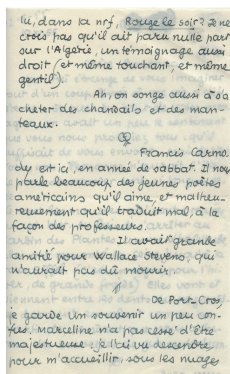 lu, dans la nrf, Rouge le soir? Je ne
crois pas qu'il ait paru nulle part
sur l'Algérie, un témoignage aussi
droit (et même touchant, et même
gentil).
Ah, on songe aussi à s'a
cheter des chandails et des man-
teaux.
Francis Carmo
dy est ici, en année de sabbat. Il nous
parle beaucoup des jeunes poètes
américains qu'il aime, et malheu-
reusement qu'il traduit mal, à la
façon des professeurs.
Il avait grande
amitié pour Wallace Stevens qui
n'aurait pas dû mourir.
De Port-Cros
je garde un souvenir un peu con-
fus, marceline n'a pas cessé d'être
majestueuse : je l'ai vu descendre
pour m'accueillir, sous les nuages